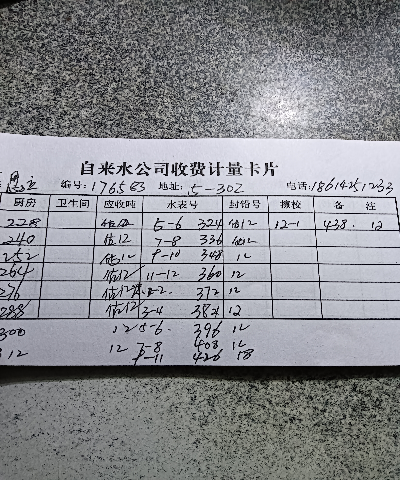 自来水公司收费计量卡片
编号: 176563 地址: 5-302 电话: 18614251233
厨房 卫生间 应收吨 水表号 封铅号 撤校 备注
228 估12 5-6 324 估12 12-1 438. 12
240 估12 7-8 336 估12
252 估12 9-10 348 12
264 估12 11-12 360 12
276 估12 -2. 372 12
288 估12 3-4 384 12
300 12 5-6. 396 12
12 12 7-8 408 12
9-11 426 18